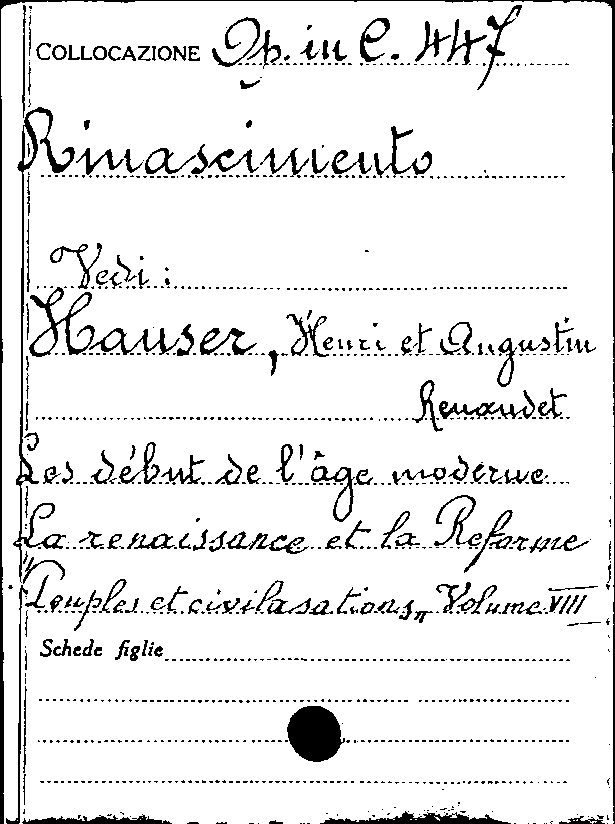 COLLOCAZIONE Op. in C. 447
Rinascimento
Vedi:
Hauser, Henri et Augustin
Renaudet
Les début de l'âge moderne
La renaissance et la Reforme
"Peuples et civilasations" Volume VIII
Schede figlie